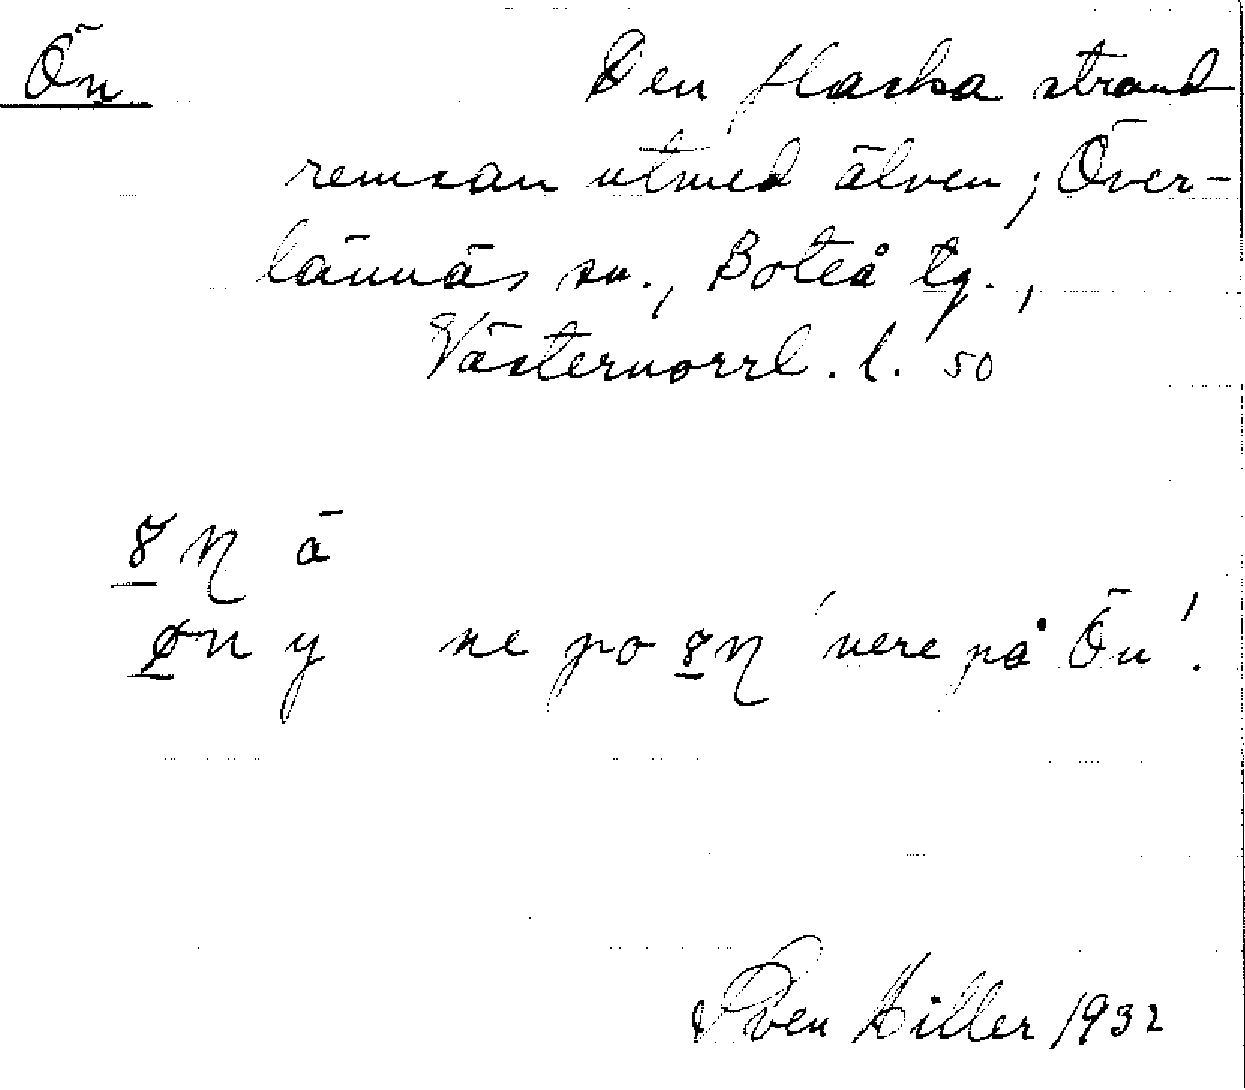 Ön
Den flacka strand
remsan utmed älven; Över-
lännäs sn., Boteå tg.,
Västernorrl. l. 50
ȣƞ ā
øn y ne po ȣƞ 'nere på Ön'.
Sven Hiller 1932